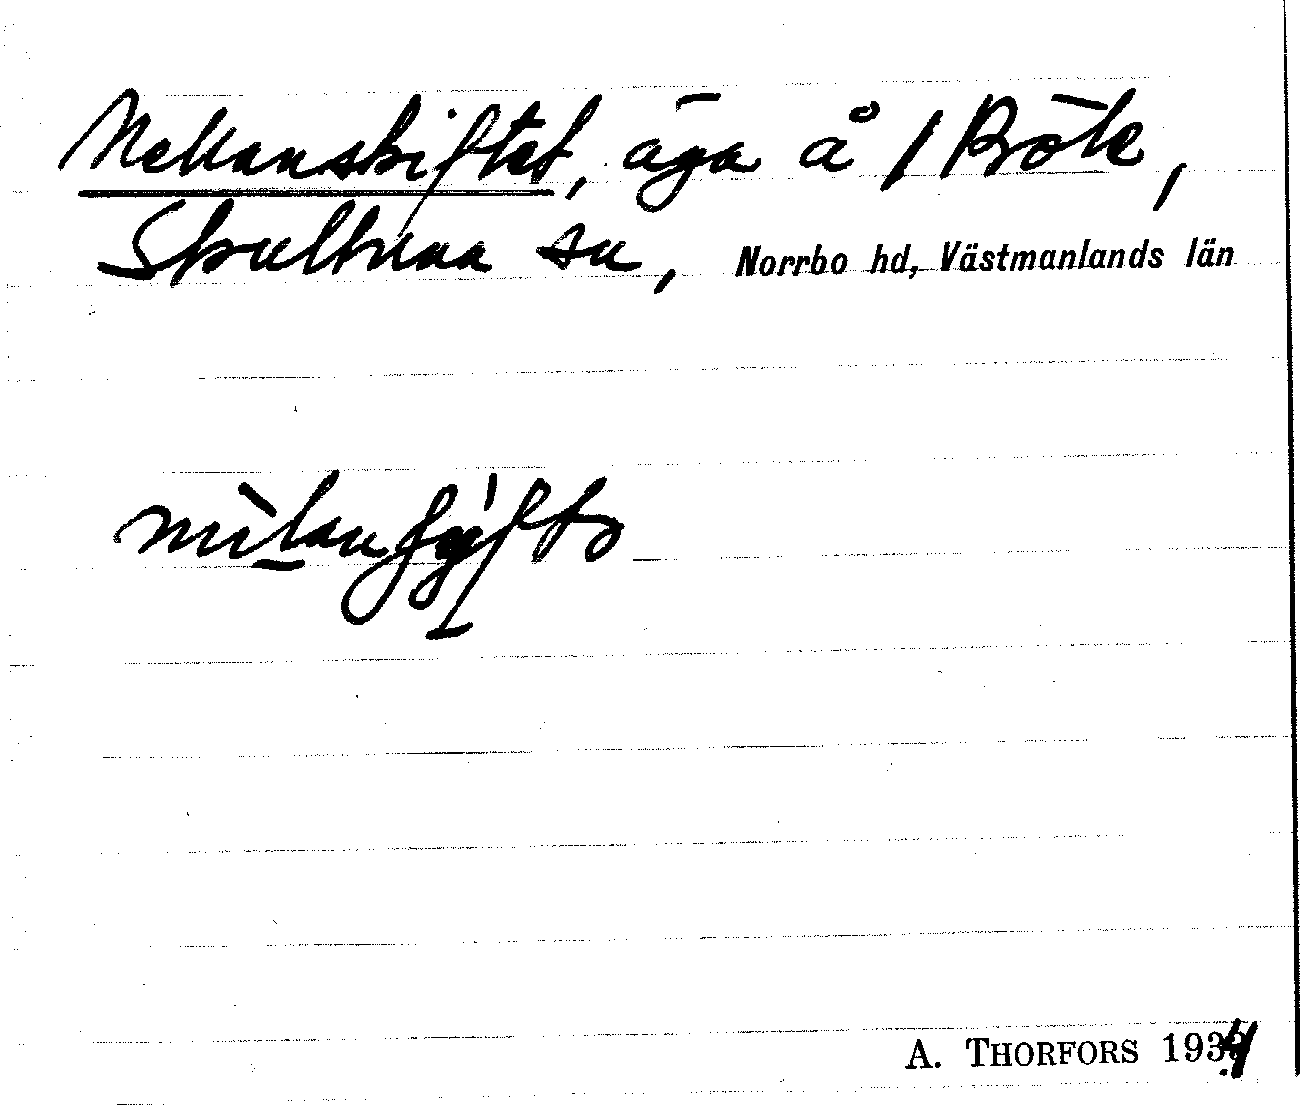 Mellanskiftet, äga å / Böle,
Skultuna sn, Norrbo hd, Västmanlands län
A. THORFORS 1934